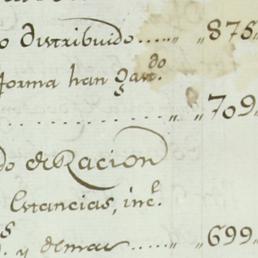 o distribuido..... „ „ 875
forma han gas.do
................ „ „ 709
do de Racion
Estancias, inc.
y demas ..... „ 699